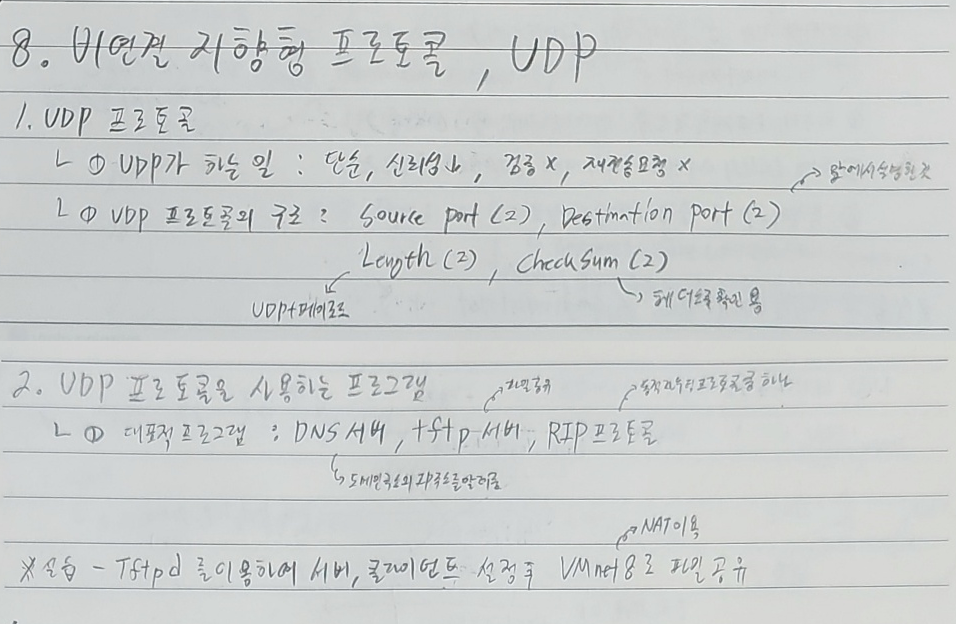 8. 비연결 지향형 프로토콜, UDP
1. UDP 프로토콜
ㄴ ① UDP가 하는 일 : 단순, 신뢰성↓, 검증 x, 재전송요청 x
앞에서 설명한 것
ㄴ ① UDP 프로토콜의 구조 : Source port (2), Destination port (2)
Length (2), CheckSum (2)
UDP+페이로드
헤더오류확인용
2. UDP 프로토콜을 사용하는 프로그램
파일공유
동적라우팅프로토콜중 하나
ㄴ ① 대표적프로그램 : DNS 서버, tftp 서버, RIP 프로토콜
도메인주소의 IP주소를알려줌
NAT이용
※실습 - Tftpd 를이용하여 서버, 클라이언트 설정후 VMnet8로 파일공유